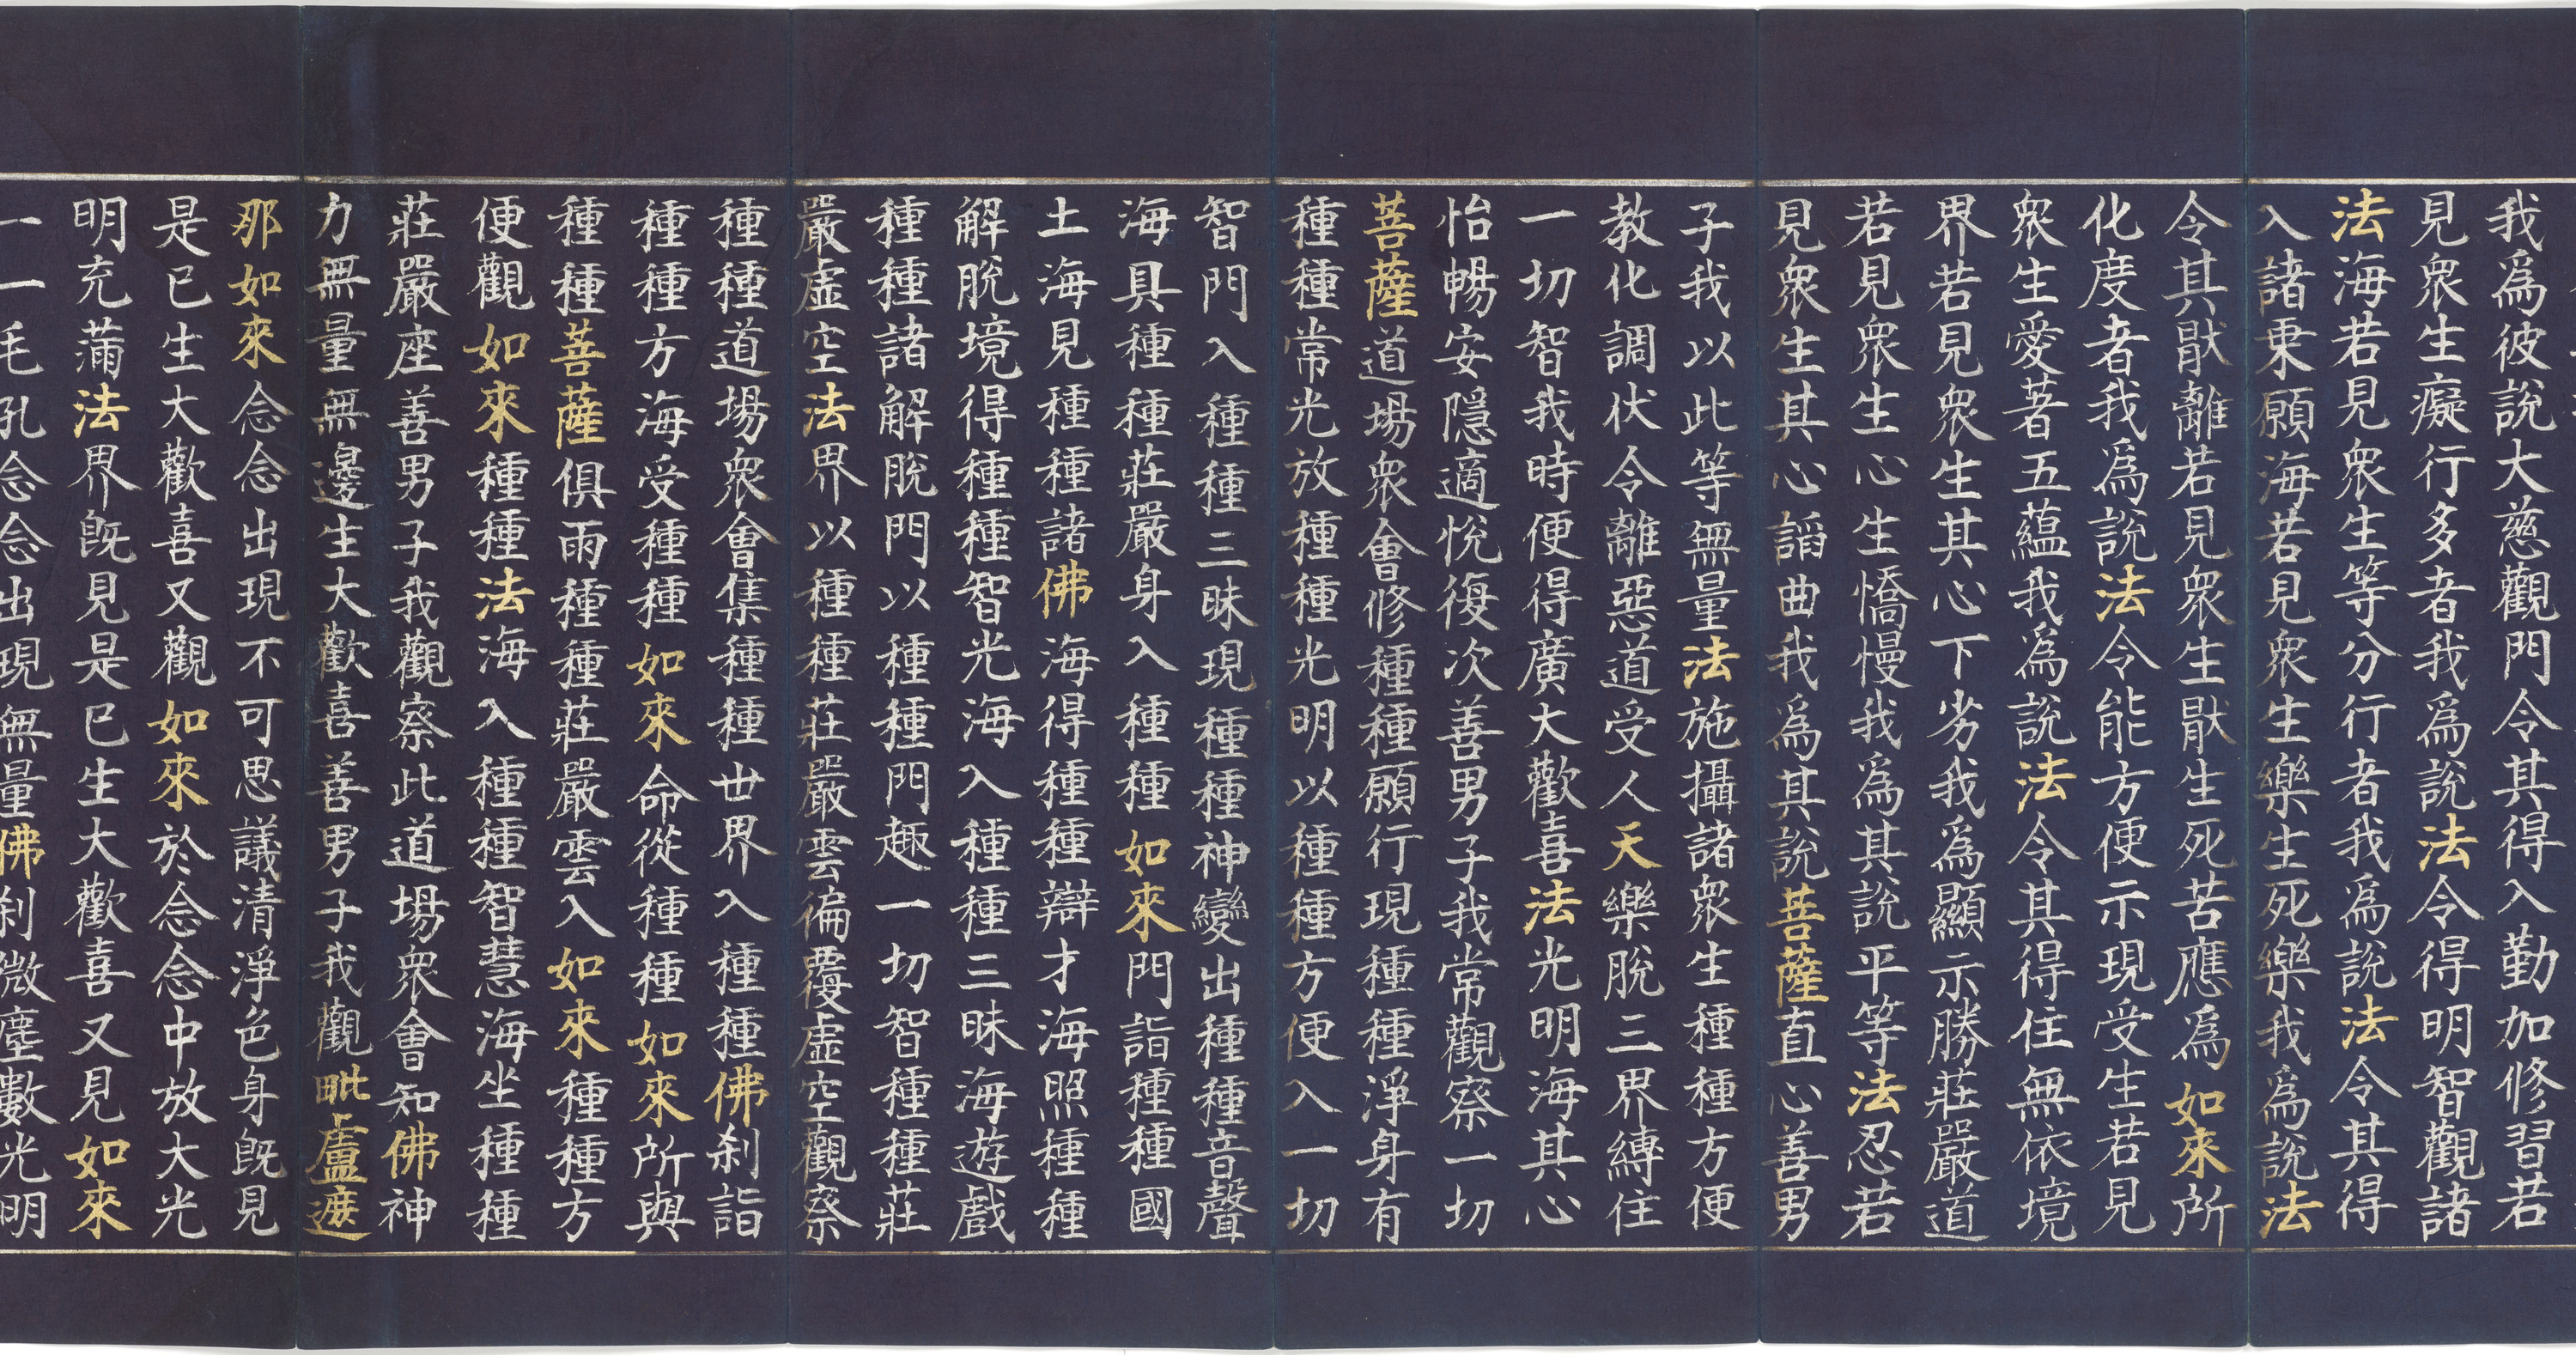 我爲彼說大慈觀門令其得入勤加修習若
見衆生癡行多者我爲說法令得明智觀諸
法海若見衆生等分行者我爲說法令其得
入諸乗願海若見衆生樂生死樂我爲說法
令其猒離若見衆生猒生死苦應爲如來所
化度者我爲說法令能方便示現受生若見
衆生愛著五蘊我爲說法令其得住無依境
界若見衆生其心下劣我爲顯示勝莊嚴道
若見衆生心生憍慢我爲其說平等法忍若
見衆生其心謟曲我爲其說菩薩直心善男
子我以此等無量法施攝諸衆生種種方便
教化調伏令離惡道受人天樂脫三界縛住
一切智我時便得廣大歡喜法光明海其心
怡暢安隱適悅復次善男子我常觀察一切
菩薩道場衆會修種種願行現種種淨身有
種種常光放種種光明以種種方便入一切
智門入種種三昧現種種神變出種種音聲
海具種種莊嚴身入種種如來門詣種種國
土海見種種諸佛海得種種辯才海照種種
解脫境得種種智光海入種種三昧海遊戲
種種諸解脫門以種種門趣一切智種種莊
嚴虛空法界以種種莊嚴雲徧覆虛空觀察
種種道場衆會集種種世界入種種佛刹詣
種種方海受種種如來命從種種如來所與
種種菩薩俱雨種種莊嚴雲入如來種種方
便觀如來種種法海入種種智慧海坐種種
莊嚴座善男子我觀察此道場衆會知佛神
力無量無邊生大歡喜善男子我觀毗盧遮
那如來念念出現不可思議清淨色身旣見
是已生大歡喜又觀如來於念念中放大光
明充滿法界旣見是已生大歡喜又見如來
一一毛孔念念出現無量佛刹微塵數光明